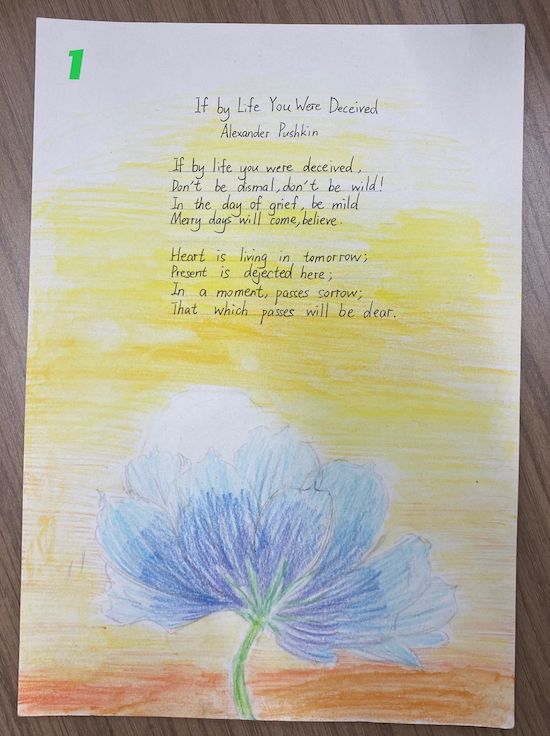 1
If by Life You Were Deceived
Alexander Pushkin
If by life you were deceived,
Don't be dismal, don't be wild!
In the day of grief, be mild
Merry days will come, believe.
Heart is living in tomorrow;
Present is dejected here;
In a moment, passes sorrow;
That which passes will be dear.